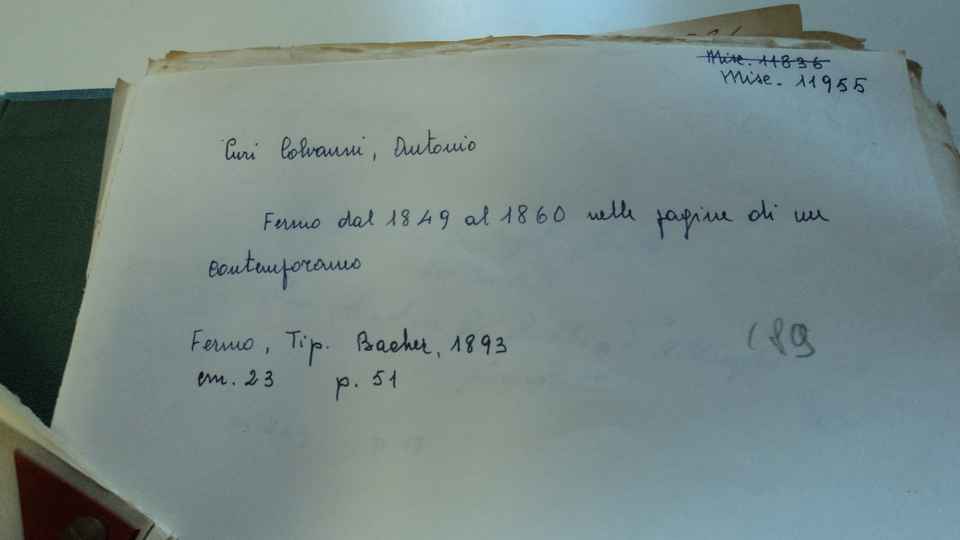 Misc. 11836
Misc. 11955
Curi Colvanni, Antonio
Fermo dal 1849 al 1860 nelle pagine di un
contemporaneo
Fermo, Tip. Bacher, 1893
cm. 23 p. 51